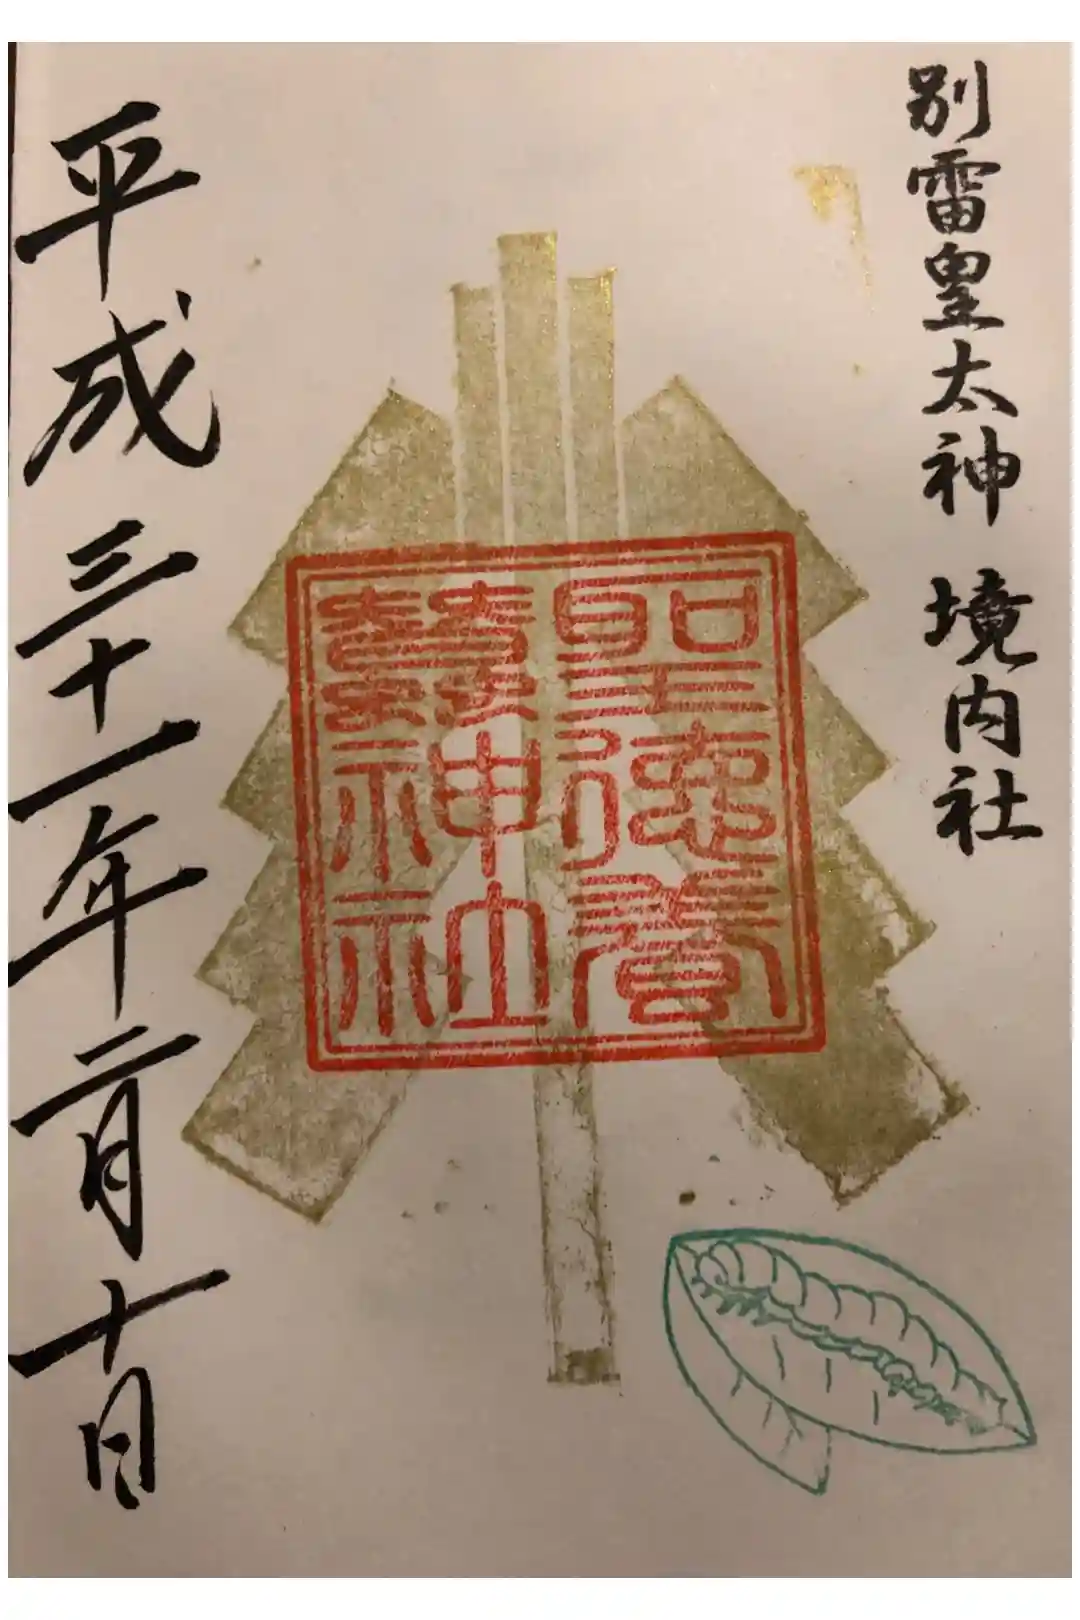 別雷皇太神 境内社
聖徳養
蠶神社
平成三十一年二月十日